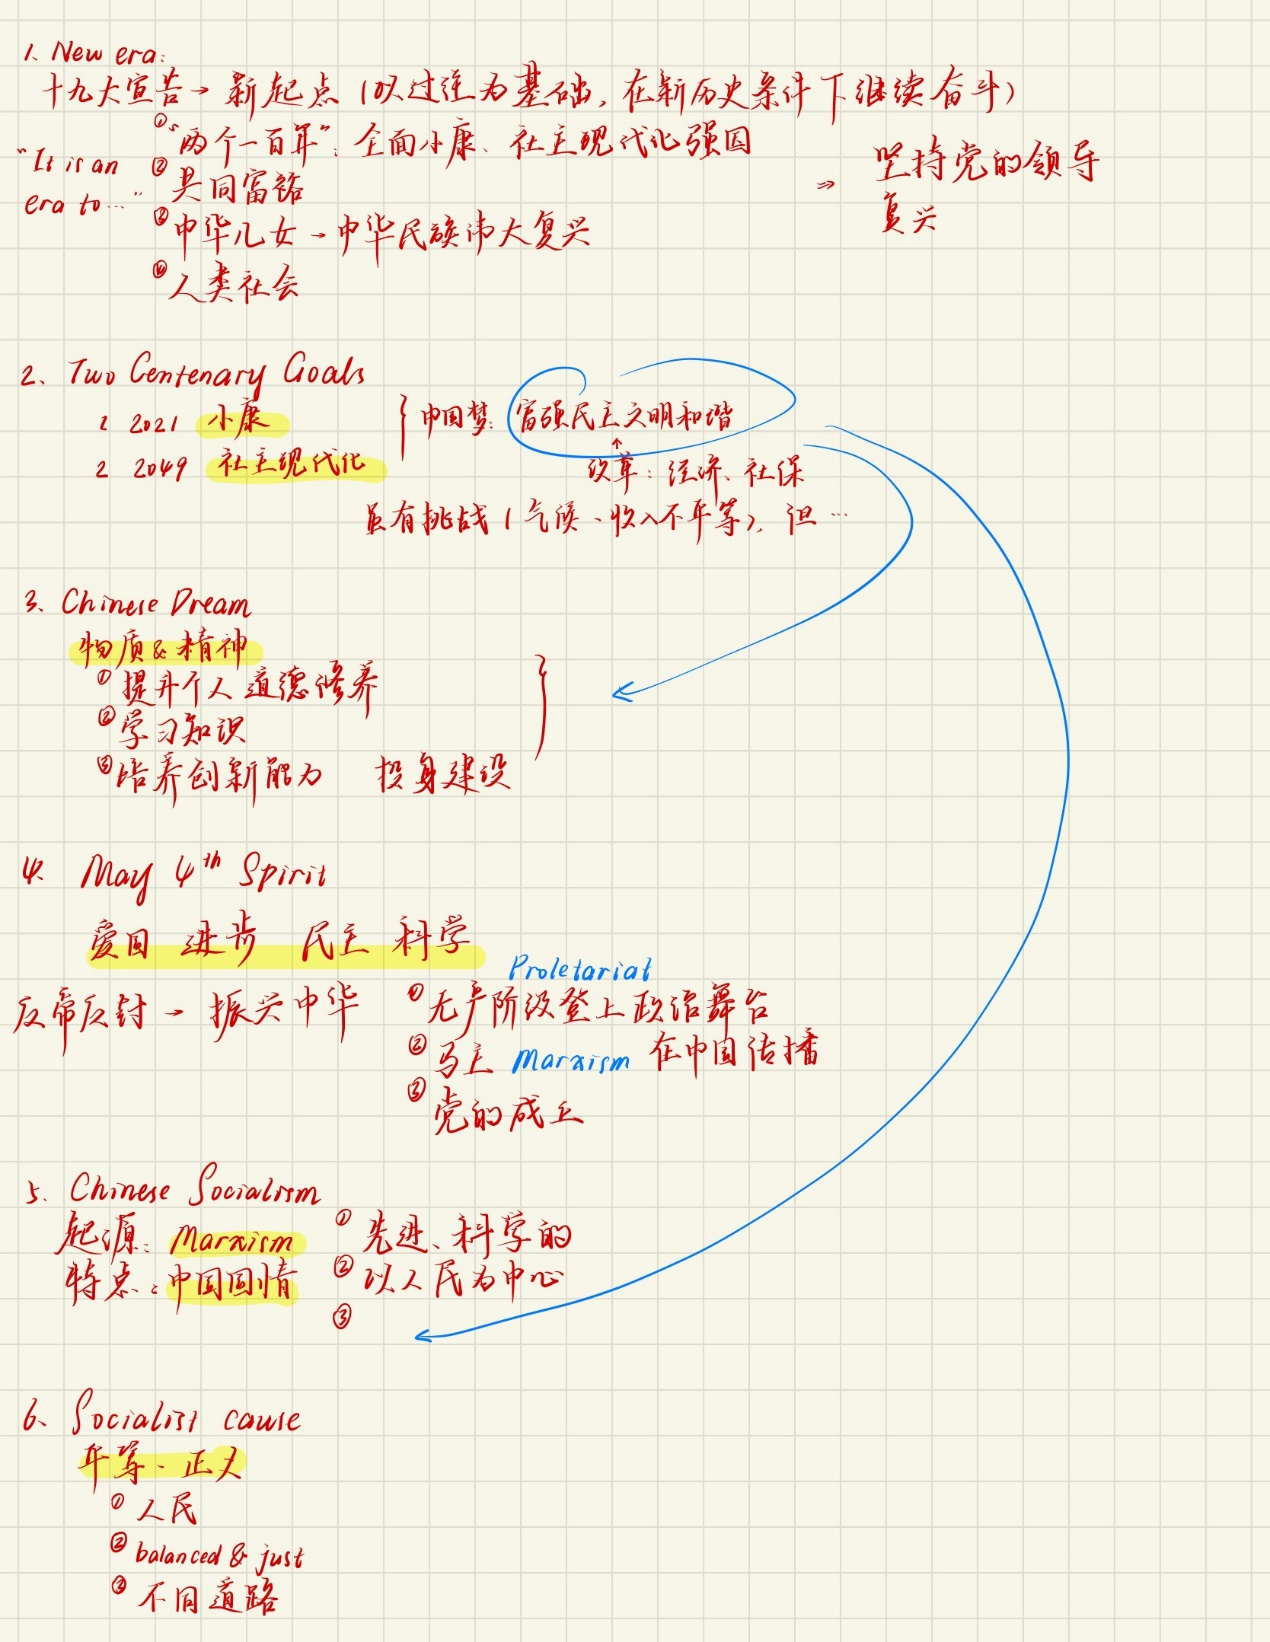 1、New era:
十九大宣告→新起点（以过往为基础，在新历史条件下继续奋斗）
①“两个一百年”：全面小康、社主现代化强国
"It is an era to..."
②共同富裕
⇒ 坚持党的领导
复兴
③中华儿女→中华民族伟大复兴
④人类社会
2、Two Centenary Goals
1 2021 小康
2 2049 社主现代化
中国梦：富强民主文明和谐
↑
改革：经济、社保
虽有挑战（气候、收入不平等），但…
3、Chinese Dream
物质&精神
①提升个人道德修养
②学习知识
③培养创新能力 投身建设
4、May 4th Spirit
爱国 进步 民主 科学
反帝反封→振兴中华
Proletariat
①无产阶级登上政治舞台
②马主 Marxism 在中国传播
③党的成立
5、Chinese Socialism
起源：Marxism
特点：中国国情
①先进、科学的
②以人民为中心
③
6、Socialist cause
平等、正义
①人民
②balanced & just
③不同道路